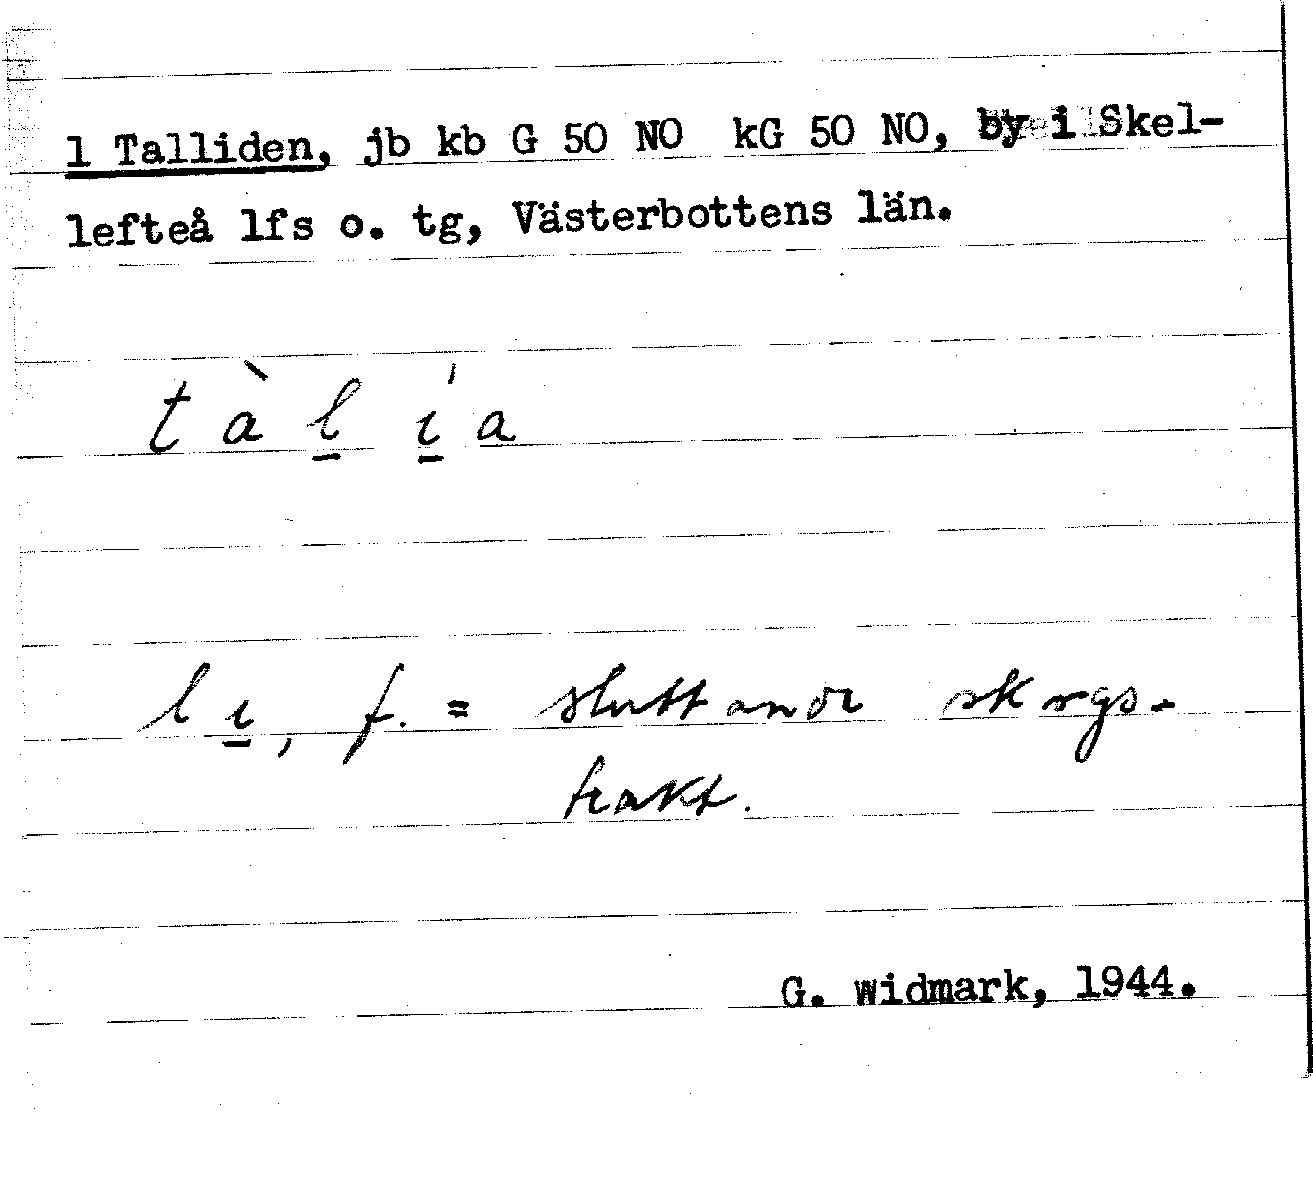 1 Talliden, jb kb G 50 NO kG 50 NO, by i Skel-
lefteå lfs o. tg, Västerbottens län.
tàl̲ı̲́a
lı̲, f. = sluttande skogs-
trakt.
G. widmark, 1944.